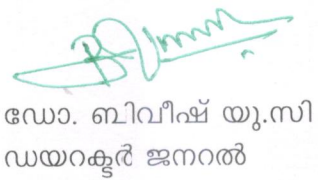 ഡോ. ബിവീഷ് യു.സി
ഡയറക്ടർ ജനറൽ